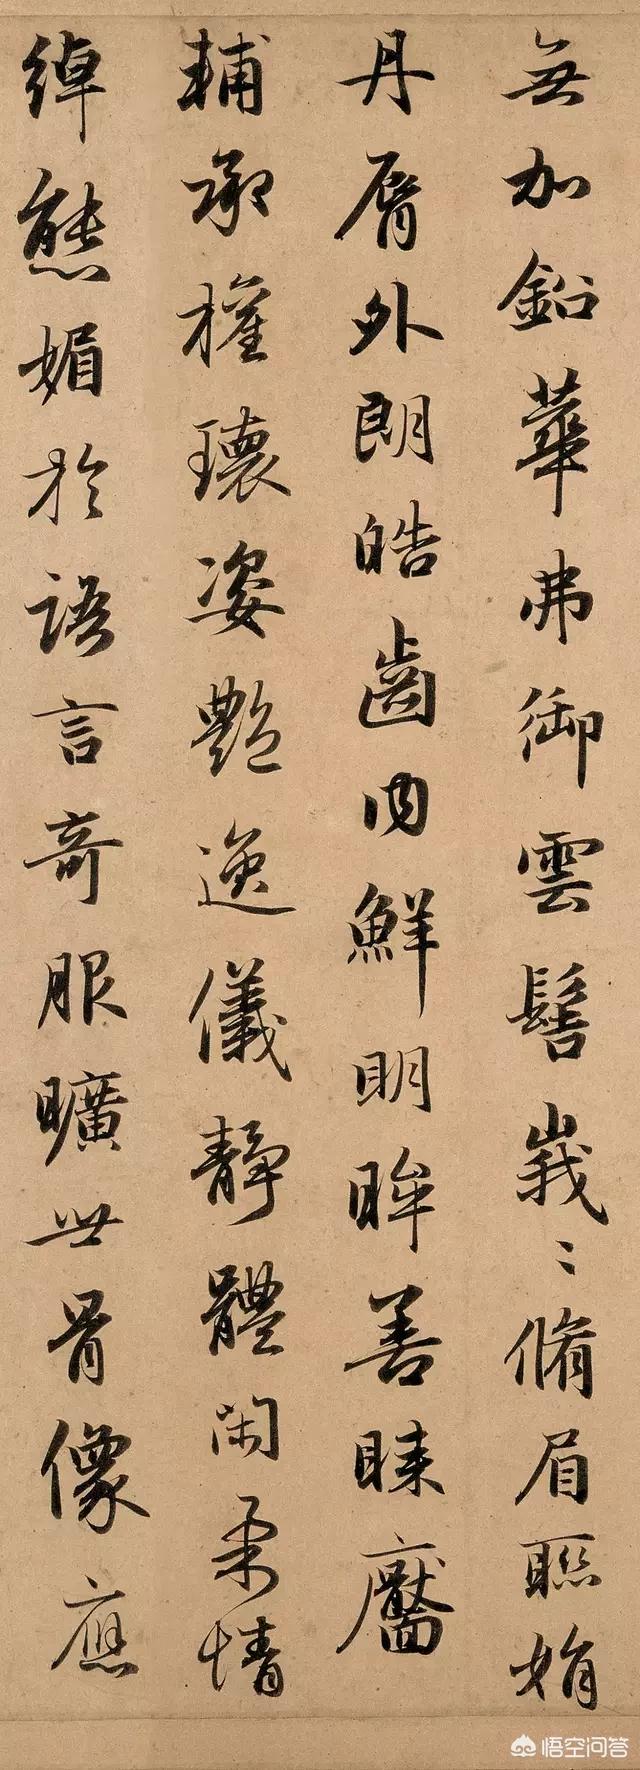 無加鉛華弗御雲髻峨〻脩眉聯娟
丹脣外朗皓齒內鮮明眸善睞靨
輔承權瓌姿艷逸儀靜體閑柔情
綽態媚於語言奇服曠世骨像應
悟空问答